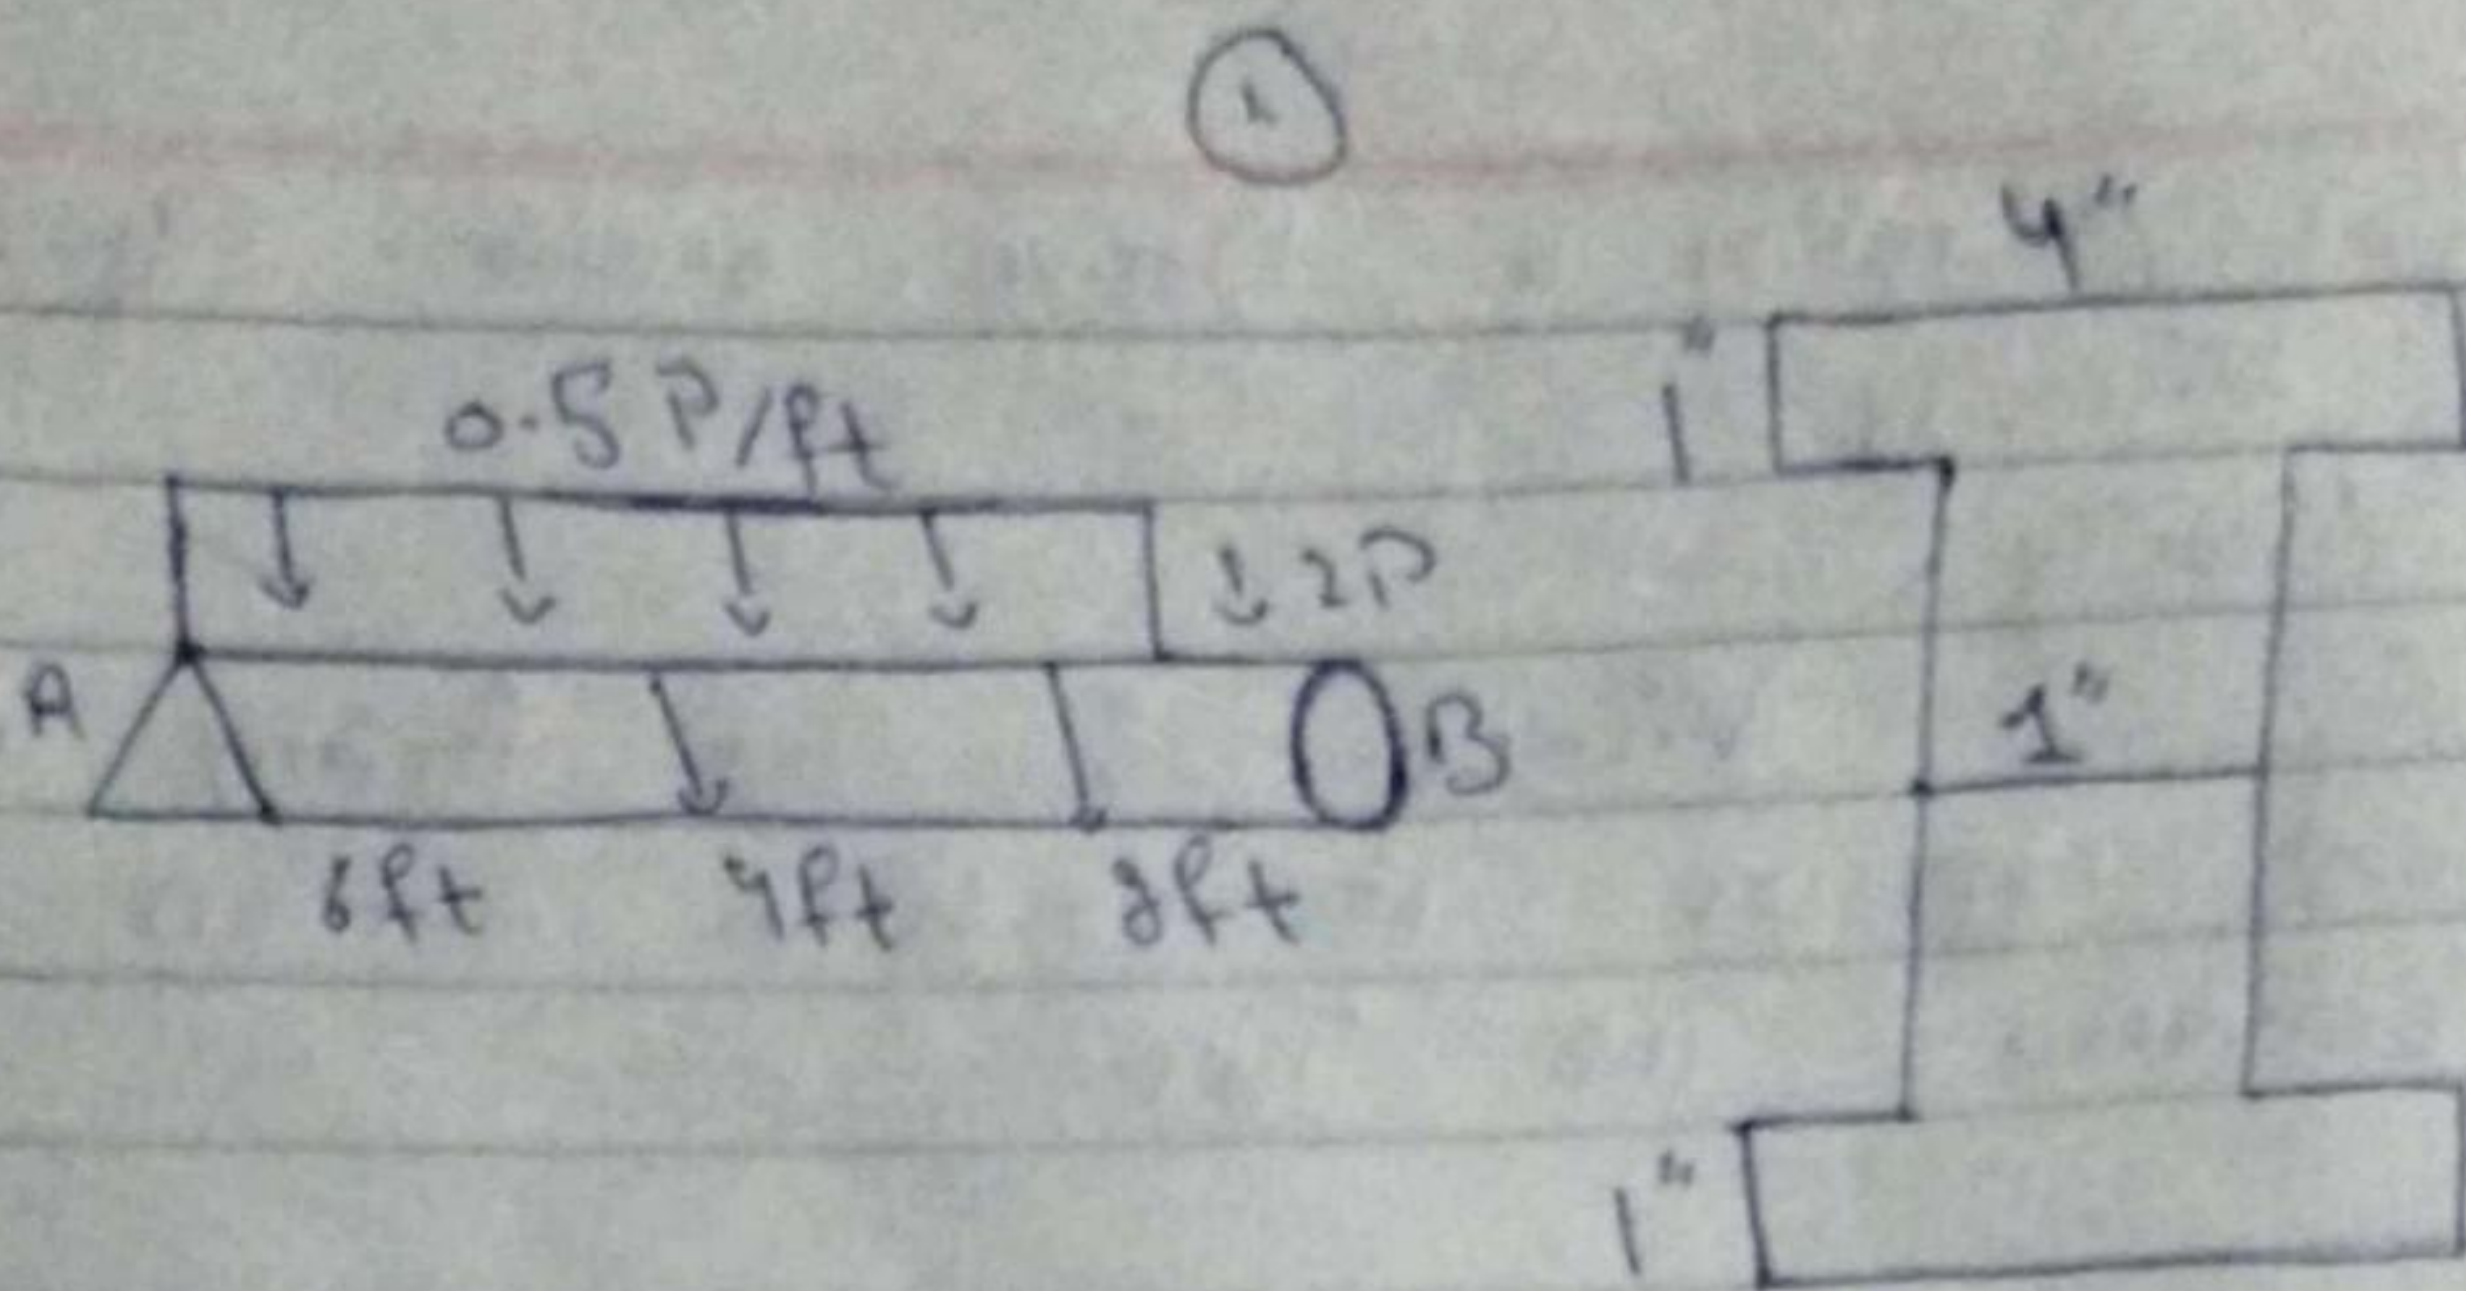 1
4"
0.5 P/ft
1"
↓ 2P
A
B
1"
6ft
4ft
8ft
1"